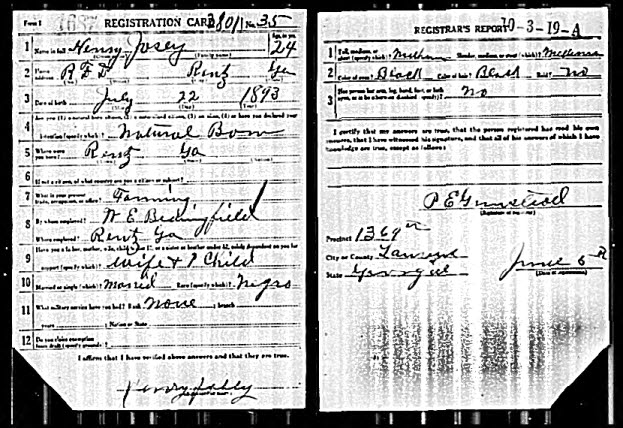 Form 1 1687 REGISTRATION CARD No. 35
Age, in yrs.
1 Name in full Henry Josey 24
2 Home address R F D Rentz Ga
3 Date of birth July 22 1893
4 Are you (1) a natural born citizen, (2) a naturalized citizen, (3) an alien, (4) or have you declared your
intention (specify which)? Natural Born
5 Where were you born? Rentz Ga
6 If not a citizen, of what country are you a citizen or subject?
7 What is your present trade, occupation, or office? Farming
8 By whom employed? W E Bedingfield
Where employed? Rentz Ga
9 Have you a father, mother, wife, child under 12, or a sister or brother under 12, solely dependent on you for
support (specify which)? Wife & 1 Child
10 Married or single (which)? Married Race (specify which)? Negro
11 What military service have you had? Rank None branch
years Nation or State
12 Do you claim exemption from draft (specify grounds)?
I affirm that I have verified above answers and that they are true.
Henry Josey
REGISTRAR'S REPORT 10-3-19-A
1 Tall, medium, or short (specify which)? Medium Slender, medium, or stout (which)? Medium
2 Color of eyes? Black Color of hair? Black Bald? No
3 Has person lost arm, leg, hand, foot, or both
eyes, or is he otherwise disabled (specify)? No
I certify that my answers are true, that the person registered has read his own
answers, that I have witnessed his signature, and that all of his answers of which I have
knowledge are true, except as follows:
(Signature of registrar)
Precinct 1369
City or County Laurens
State Georgia June 5
(Date of registration)